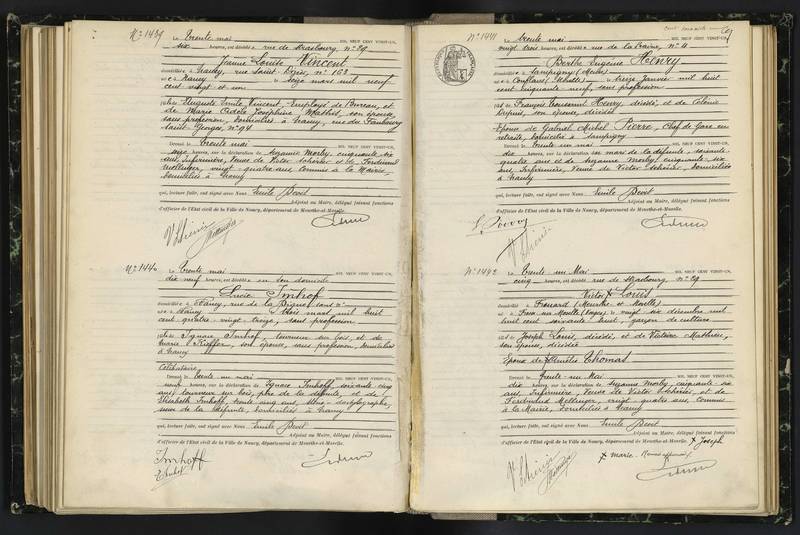 No 1439
Le Trente mai MIL NEUF CENT VINGT-UN,
six heures, est décédée rue de Strasbourg, no 29
Jeanne Louise Vincent
domiciliée à Nancy, rue Saint Dizier, no 162
née à Nancy le seize mars mil neuf
cent vingt et un
fille de Auguste Emile Vincent, Employé de Bureau, et
de Marie Adèle Joséphine, son épouse,
sans profession, domiciliés à Nancy, rue du Faubourg
Saint Georges, no 94
Dressé le Trente mai MIL NEUF CENT VINGT-UN,
heures, sur la déclaration de Suzanne Morby, cinquante six
ans, Infirmière, Veuve de Victor et de Ferdinand
vingt-quatre ans, Commis à la Mairie,
domiciliés à Nancy
qui, lecture faite, ont signé avec Nous Emile Devit
Adjoint au Maire, délégué faisant fonctions
d'officier de l'Etat civil de la Ville de Nancy, département de Meurthe-et-Moselle.
No 1440
Le Trente mai MIL NEUF CENT VINGT-UN,
dix neuf heures, est décédée en son domicile
Lucie Imhoff
domiciliée à Nancy, rue de la
née à Nancy le trois mars mil huit
cent quatre vingt treize, sans profession
fille de Ignace Imhoff, tourneur sur bois, et de
Marie Kieffer, son épouse, sans profession, domiciliés
à Nancy
Célibataire
Dressé le Trente un mai MIL NEUF CENT VINGT-UN,
neuf heures, sur la déclaration de Ignace Imhoff, soixante cinq
ans, tourneur sur bois, père de la défunte, et de
Elisabeth Imhoff, trente cinq ans, sténo-dactylographe,
sœur de la défunte, domiciliés à Nancy
qui, lecture faite, ont signé avec Nous Emile Devit
Adjoint au Maire, délégué faisant fonctions
d'officier de l'Etat civil de la Ville de Nancy, département de Meurthe-et-Moselle.
Imhoff
E Imhoff
No 1441
Le trente mai MIL NEUF CENT VINGT-UN,
vingt trois heures, est décédée rue de la no 4
Berthe Eugénie Henry
domiciliée à Sampigny (Meuse)
née à Conflans le treize Janvier mil huit
cent cinquante neuf, sans profession
fille de François Toussaint Henry, décédé, et de
Dupuis, son épouse, décédée
Epouse de Gabriel Michel Pierre, Chef de Gare en
retraite, domicilié à Sampigny
Dressé le Trente un mai MIL NEUF CENT VINGT-UN,
dix heures, sur la déclaration de mari de la défunte, soixante
quatre ans et de Suzanne Morby, cinquante six
ans, Infirmière, Veuve de Victor domiciliés
à Nancy
qui, lecture faite, ont signé avec Nous Emile Devit
Adjoint au Maire, délégué faisant fonctions
d'officier de l'Etat civil de la Ville de Nancy, département de Meurthe-et-Moselle.
No 1442
Le Trente un Mai MIL NEUF CENT VINGT-UN,
cinq heures, est décédé rue de Strasbourg, no 29
Victor x Louis
domicilié à Frouard (Meurthe et Moselle)
né à (Vosges) le vingt six décembre mil
huit cent soixante huit, garçon de culture
fils de Joseph Louis, décédé, et de Victoire Mathieu,
son épouse, décédée
Epoux de x Amélie Thomas
Dressé le Trente un Mai MIL NEUF CENT VINGT-UN,
dix heures, sur la déclaration de Suzanne Morby, cinquante six
ans, Infirmière, Veuve de Victor et de
Ferdinand vingt quatre ans, Commis
à la Mairie, domiciliés à Nancy
qui, lecture faite, ont signé avec Nous Emile Devit
Adjoint au Maire, délégué faisant fonctions
d'officier de l'Etat civil de la Ville de Nancy, département de Meurthe-et-Moselle. x Joseph
x marie